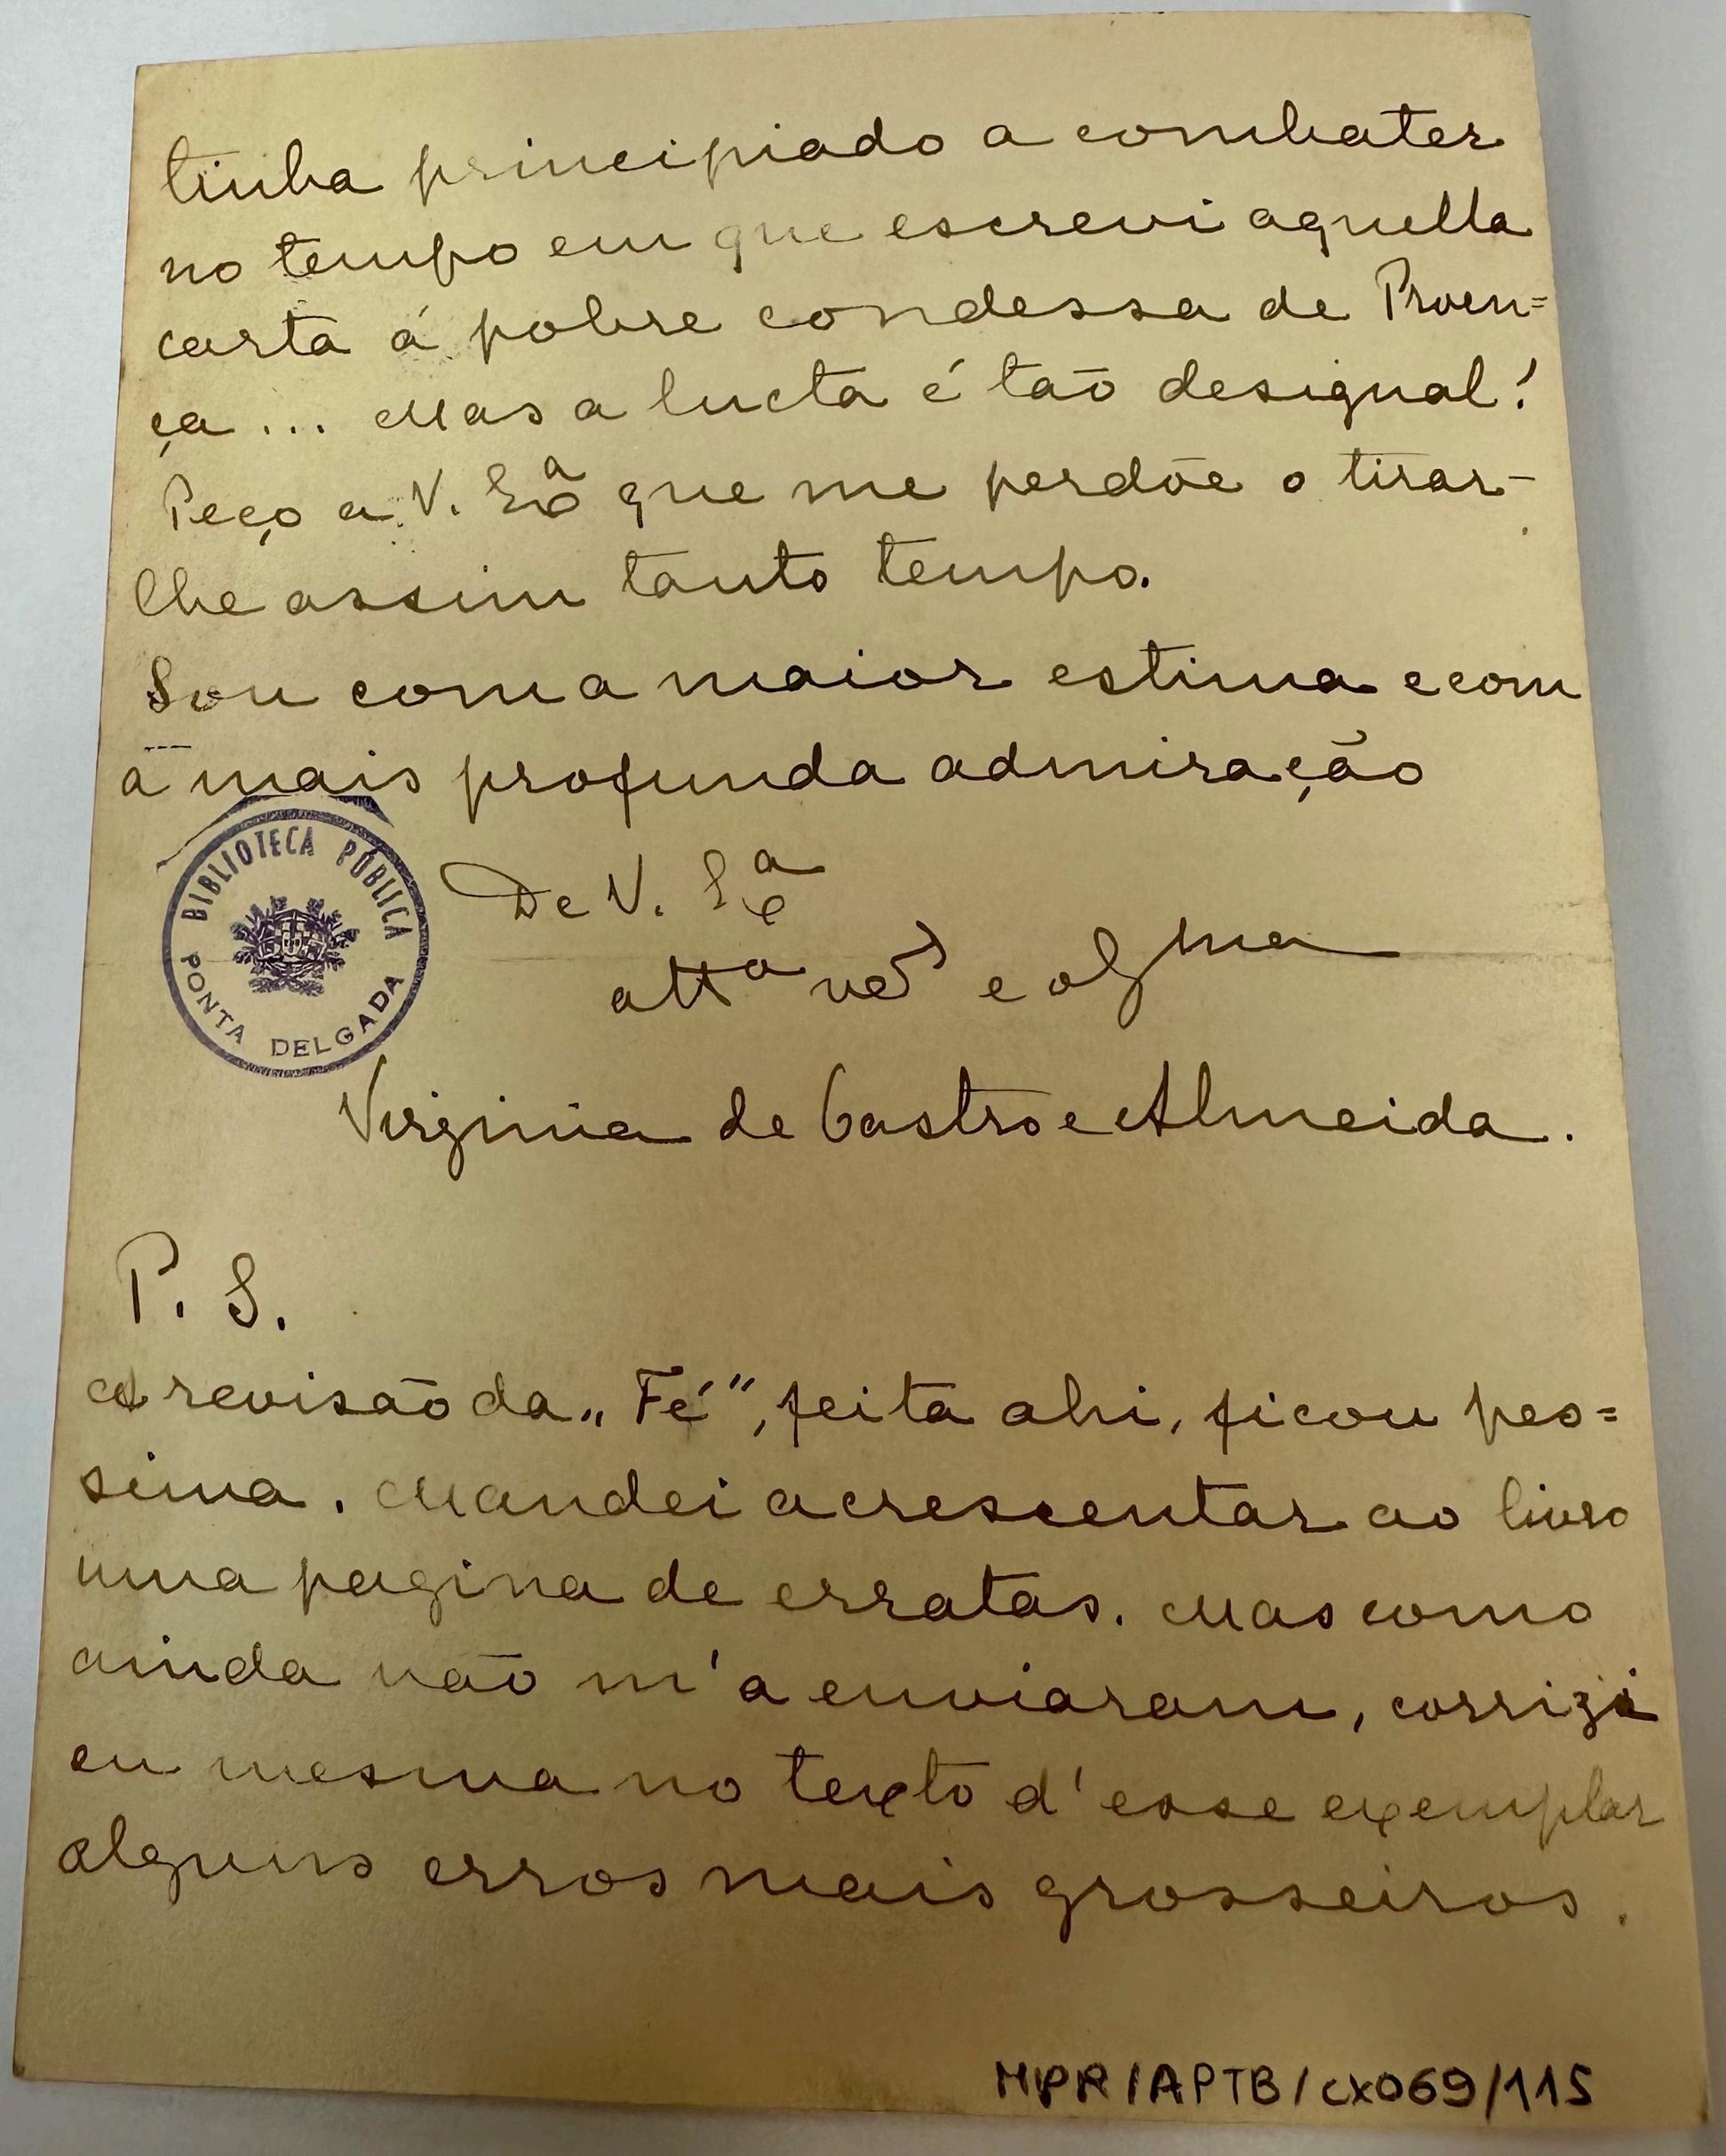 tinha principiado a combater
no tempo em que escrevi aquella
carta á pobre condessa de Proen=
ça ... Mas a lucta é tão desigual!
Peço a V. Exª que me perdõe o tirar-
lhe assim tanto tempo.
Sou com a maior estima e com
a mais profunda admiração
BIBLIOTECA PÚBLICA
PONTA DELGADA
De V. Exª
attª
e obgma
Virginia de Castro e Almeida.
P. S.
A revisão da „Fé", feita ahi, ficou pes=
sima. Mandei acrescentar ao livro
uma pagina de erratas. Mas como
ainda não m'a enviaram, corrigi
eu mesma no texto d'esse exemplar
alguns erros mais grosseiros.
MPR/APTB/cx069/115